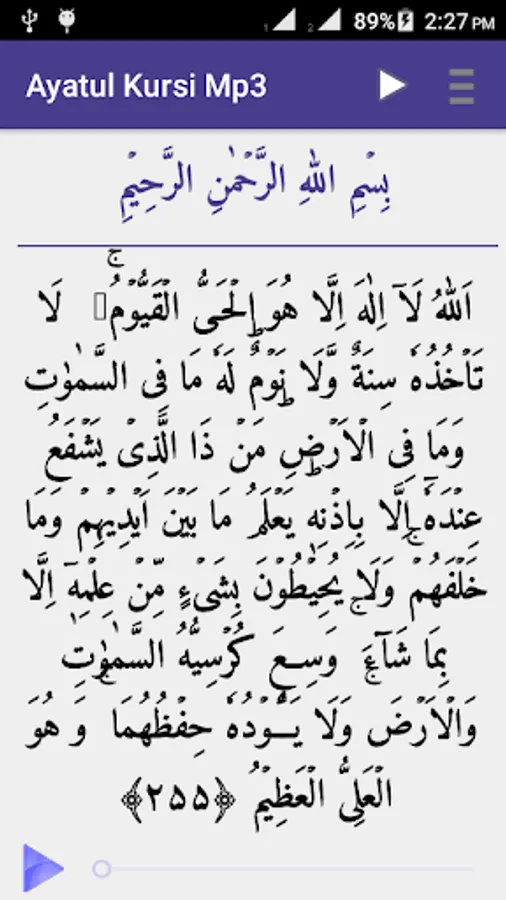 1 2 89% 2:27 PM
Ayatul Kursi Mp3
بِسْمِ اللهِ الرَّحْمٰنِ الرَّحِيْمِ
اَللهُ لَآ اِلٰهَ اِلَّا هُوَ ۚ اَلْحَیُّ الْقَيُّوْمُ ۚ لَا
تَاْخُذُهٗ سِنَةٌ وَّلَا نَوْمٌ ؕ لَهٗ مَا فِی السَّمٰوٰتِ
وَمَا فِی الْاَرْضِ ؕ مَنْ ذَا الَّذِیْ يَشْفَعُ
عِنْدَهٗٓ اِلَّا بِاِذْنِهٖ ؕ يَعْلَمُ مَا بَيْنَ اَيْدِيْهِمْ وَمَا
خَلْفَهُمْ ۚ وَلَا يُحِيْطُوْنَ بِشَیْءٍ مِّنْ عِلْمِهٖٓ اِلَّا
بِمَا شَآءَ ۚ وَسِعَ كُرْسِيُّهُ السَّمٰوٰتِ
وَالْاَرْضَ ۚ وَلَا يَـــُٔوْدُهٗ حِفْظُهُمَا ۚ وَ هُوَ
الْعَلِیُّ الْعَظِيْمُ ﴿۲۵۵﴾